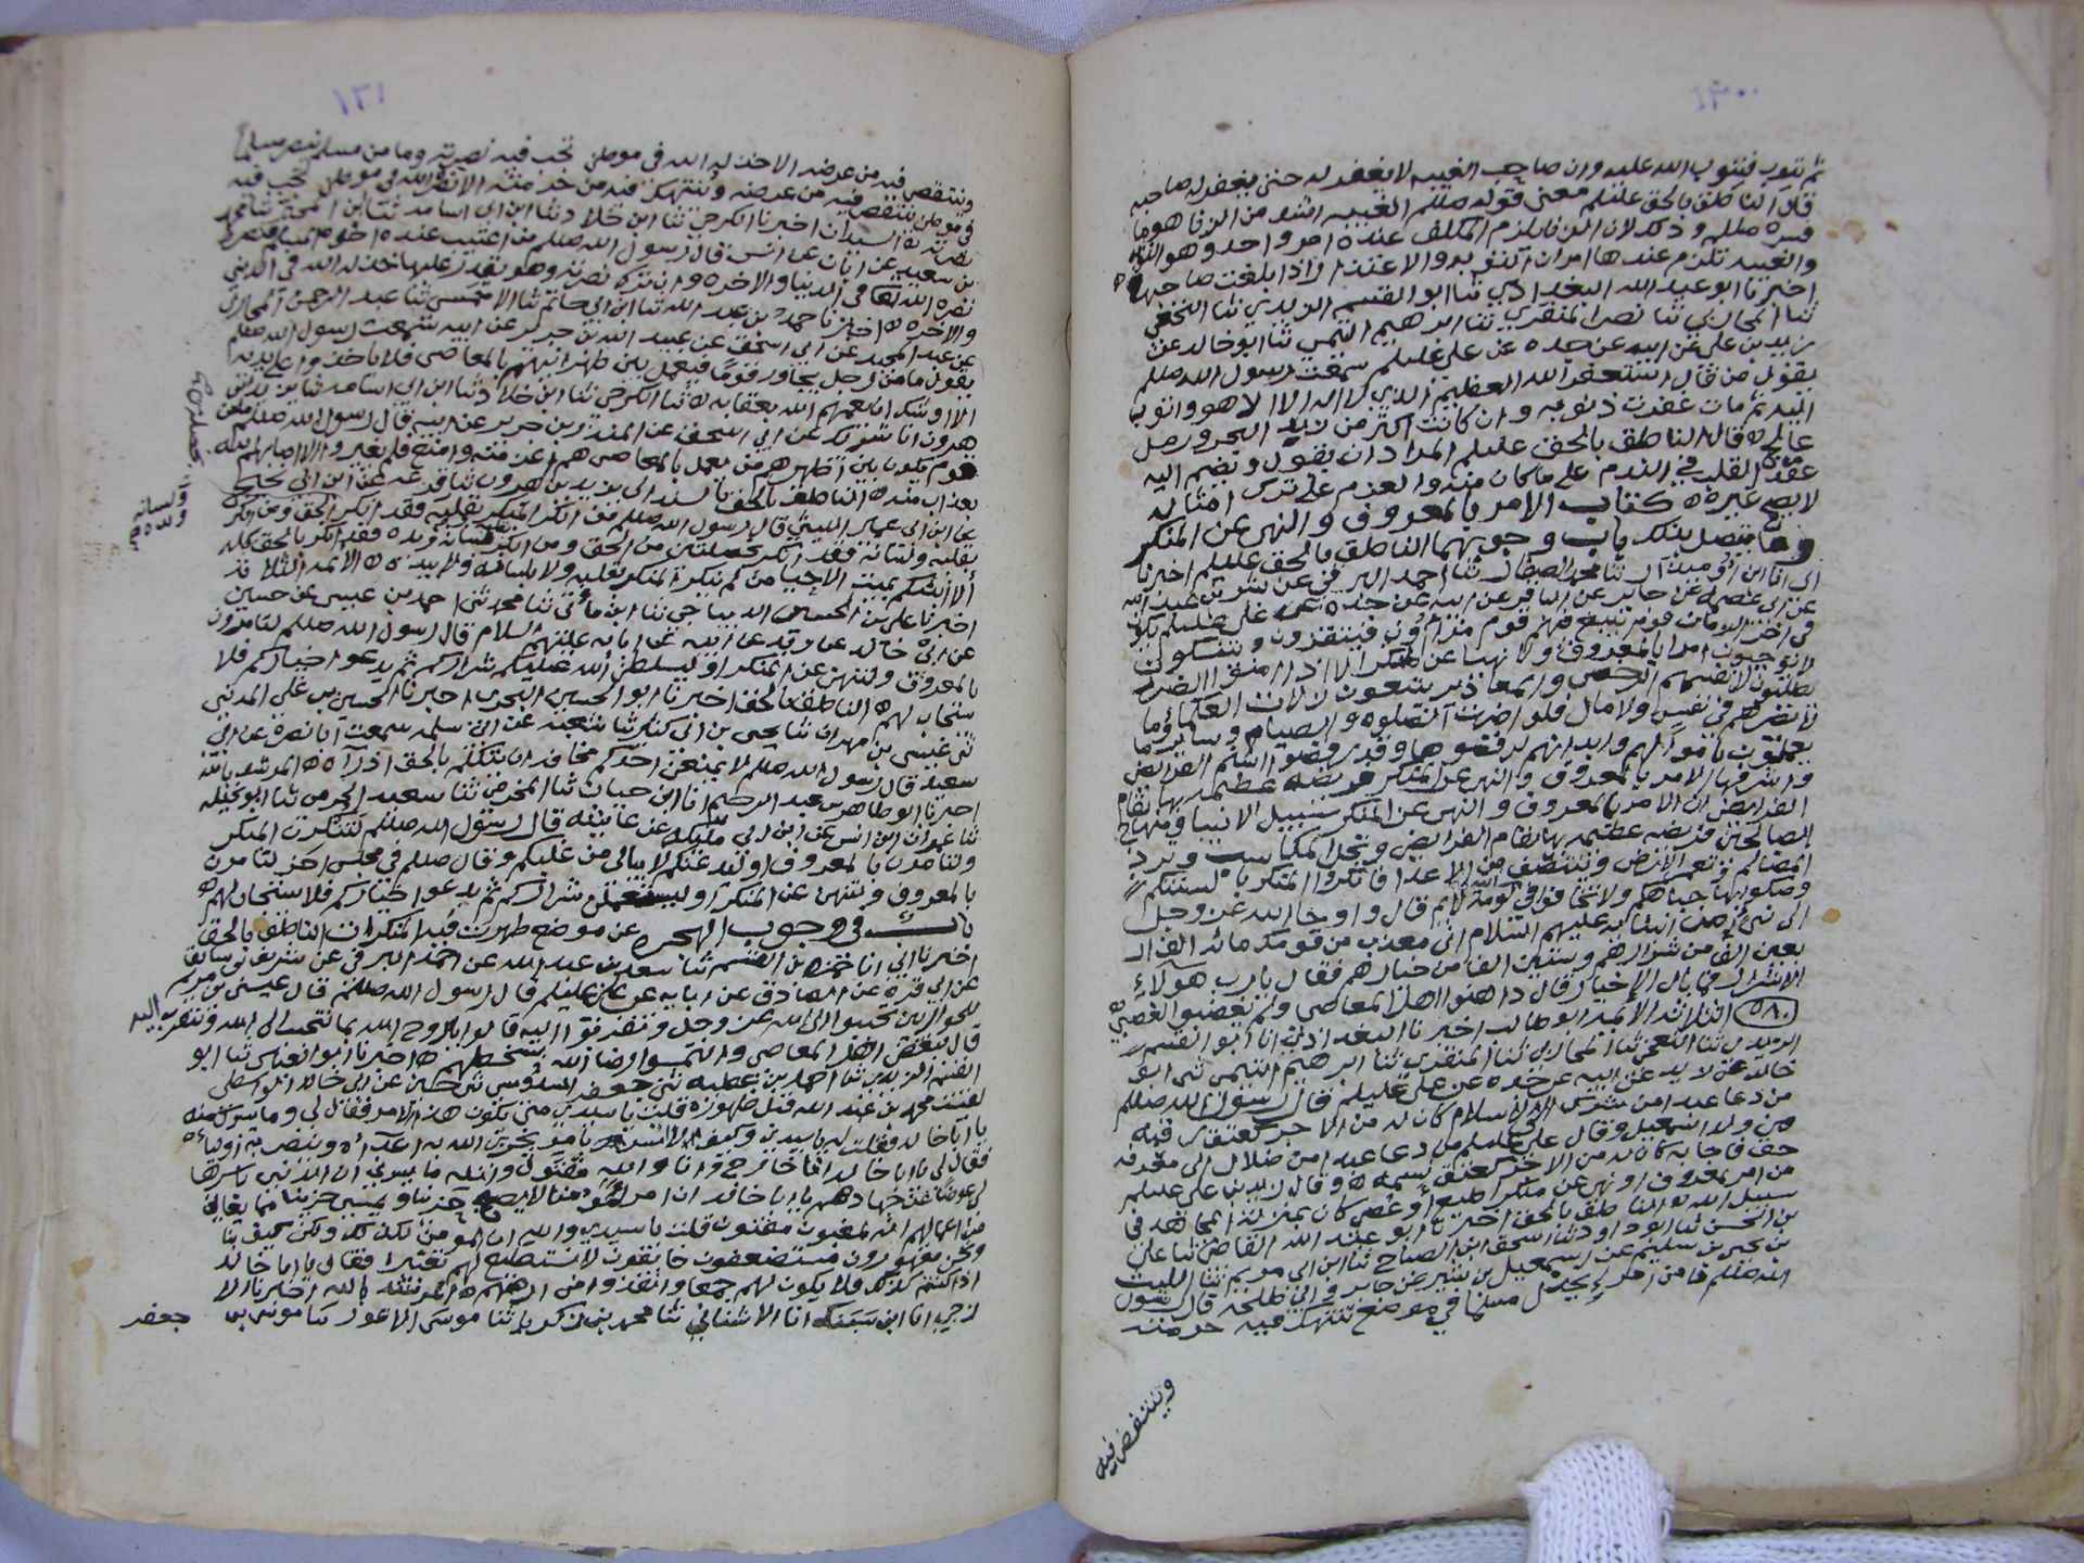 ١٣٠
ثم يتوب فيتوب الله عليه وان صاحب الغيبه لا يغفر له حتى يغفر له صاحبه
قال الناطق بالحق عليلم معنى قوله صللم الغيبه اشد من الزنا هو ما
فسره صللم وذلك لان الزنا يلزم المكلف عنده امر واحد وهو التوبه
والغيبه تلزم عندها امران التوبه والاعتذار اذا بلغت صاحبها
اخبرنا ابو عبد الله البغدادي ثنا ابو القسم الزيدي ثنا النخعي
ثنا المحاربي ثنا نصر المنقري ثنا ابرهيم التيمي ثنا ابو خالد عن
زيد بن علي عن ابيه عن جده عن علي عليلم سمعت رسول الله صللم
يقول من قال استغفر الله العظيم الذي لا اله الا هو واتوب
اليه ثم مات غفرت ذنوبه وان كانت اكثر من زبد البحر ورمل
عالج ه قال الناطق بالحق عليلم المراد ان يقول ويضم اليه
عقد القلب في الندم على ما كان منه والعزم على ترك امثاله
لا يصح غيره ه كتاب الامر بالمعروف والنهي عن المنكر
وما يتصل بذلك باب وجوبهما الناطق بالحق عليلم اخبرنا
ابي انا ثنا محمد الصفار ثنا احمد البرقي عن
عن ابي عصمه عن جابر عن الباقر عن ابيه عن جده عن علي عليلم يكون
في اخر الزمان قوم فيهم قوم مراؤن فيتقرون ويتنسكون
لا يوجبون امرا بالمعروف ولا نهيا عن منكر الا اذا امنوا الضرر
يطلبون لانفسهم الرخص والمعاذير يتبعون زلات العلماء وما
لا يضرهم في نفس ولا مال فلو اضرت الصلوه والصيام وسائر ما
يعملون باموالهم وابدانهم لرفضوها وقد رفضوا اسنم الفرائض
واشرفها الامر بالمعروف والنهي عن المنكر فريضه عظيمه بها تقام
الفرايض ان الامر بالمعروف والنهي عن المنكر سبيل الانبيا ومنهاج
الصالحين فريضه عظيمه بها تقام الفرايض وتحل المكاسب وترد
المظالم وتعمر الارض وينتصف من الاعدا فانكروا المنكر بالسنتكم
وصكوا بها جباههم ولا تخافوا في الله لومة لايم قال واوحى الله عز وجل
الى نبي من انبيائه عليهم السلام اني معذب من قومك مائه الف
اربعين الفا من شرارهم وستين الفا من خيارهم فقال يا رب هولاء
الاشرار فما بال الاخيار قال داهنوا اهل المعاصي ولم يغضبوا لغضبي ه
٥٨٠ الثلاثه الائمه ابو طالب اخبرنا البغدادي انا ابو القسم
الزيدي ثنا النخعي ثنا المحاربي ثنا المنقري ثنا ابرهيم التيمي ثنى ابو
خالد عن زيد عن ابيه عن جده عن علي عليلم قال رسول الله صللم
من دعا عبدا من شرك الى الاسلام كان له من الاجر كعتق رقبه
من ولد اسمعيل وقال علي عليلم من دعا عبدا من ضلال الى معرفه
حق فاجابه كان له من الاجر كعتق نسمه ه وقال زيد بن علي عليلم
من امر بمعروف او نهى عن منكر اطيع او عصي كان بمنزلة المجاهد في
سبيل الله ه الناطق بالحق اخبرنا ابو عبد الله القاضي ثنا علي
بن الحسن ثنا ابو داود ثنا اسحق ابن الصباح ثنا ابن ابي مريم ثنا الليث
بن يحيى بن سليم عن اسمعيل بن بشير عن جابر وابي طلحه قال رسول
الله صللم ما من امرء يخذل مسلما في موضع تنتهك فيه حرمته
وينتقص فيه
١٣١
وينتقص فيه من عرضه الا خذله الله في موطن تحب فيه نصرته وما من مسلم ينصر مسلما
في موطن ينتقص فيه من عرضه وينتهك فيه من حرمته الا نصره الله في موطن يحب فيه
نصرته ه السيدان اخبرنا الكرجي ثنا ابن خلاد ثنا ابن ابي اسامه ثنا ابن المحبر ثنا محمد
بن سعيد عن ابان عن انس قال رسول الله صللم من اغتيب عنده اخوه المسلم فنصره
نصره الله بها في الدنيا والاخره وان ترك نصرته وهو يقدر عليها خذله الله في الدنيا
والاخره ه اخبرنا حمد بن عبد الله ثنا ابن ابي حاتم ثنا الاحمسي ثنا عبد الرحمن المحاربي
عن عبد الحميد عن ابي اسحق عن عبيد الله بن جرير عن ابيه سمعت رسول الله صللم
يقول ما من رجل يجاور قوما فيعمل بين ظهرانيهم بالمعاصي فلا ياخذوا على يديه
الا اوشك ان يعمهم الله بعقابه ه ثنا الكرجي ثنا ابن خلاد ثنا ابن ابي اسامه ثنا يزيد بن
هرون انا شريك عن ابي اسحق عن المنذر بن جرير عن ابيه قال رسول الله صللم ما من
قوم يكون بين اظهرهم من يعمل بالمعاصي هم اعز منه وامنع فلم يغيروا الا اصابهم الله
بعذاب منه ه الناطق بالحق بالسند الى يزيد بن هرون عن ابن ابي نجيح
عن ابن ابي عمار الليثي قال رسول الله صللم من انكر المنكر بقلبه فقد انكر الحق ومن انكر
بقلبه ولسانه فقد انكر بخصلتين من الحق ومن انكر بقلبه ولسانه ويده فقد انكر بالحق كله
الا انبئكم بميت الاحيا من لم ينكر المنكر بقلبه ولا بلسانه ولا بيده ه الائمه الثلاثه
اخبرنا علي بن الحسين الديباجي ثنا ابن ماتي ثنا محمد ثنى احمد بن عيسى عن حسين
عن ابي خالد عن زيد عن ابيه عن ابايه عليهم السلام قال رسول الله صللم لتامرون
بالمعروف ولتنهن عن المنكر او ليسلطن الله عليكم شراركم ثم يدعو خياركم فلا
يستجاب لهم ه الناطق بالحق اخبرنا ابو الحسين البحري اخبرنا الحسين بن علي المدني
ثنى عيسى بن مهران ثنا يحيى بن ابي كثير ثنا شعبه عن ابي سلمه سمعت ابا نضرة عن ابي
سعيد قال رسول الله صللم لا يمنعن احدكم مخافة ان يتكلم بالحق اذ رآه ه المرشد بالله
اخبرنا ابو طاهر بن عبد الرحيم انا ابن حيان ثنا ثنا سعيد الجرمي ثنا ابو تميله
عن ابن ابي مليكه عن عايشه قال رسول الله صللم لتنكرن المنكر
ولتامرن بالمعروف او ليبعثن عليكم من لا يبالي من عليكم وقال صللم في مجلس اخر لتامرن
بالمعروف ولتنهن عن المنكر او ليستعملن شراركم ثم يدعو خياركم فلا يستجاب لهم ه
باب في وجوب الهجره عن موضع ظهرت فيه المنكرات الناطق بالحق
اخبرنا ابي انا حمزه بن القسم ثنا سعد بن عبد الله عن احمد البرقي عن شريف بن سابق
عن ابي قره عن الصادق عن ابايه عن علي عليلم قال رسول الله صللم قال عيسى بن مريم
للحواريين تحببوا الى الله عز وجل وتقربوا اليه قالوا يا روح الله بما نتحبب الى الله ونتقرب اليه
قال ببغض اهل المعاصي والتمسوا رضا الله بسخطهم ه اخبرنا ابو العباس ثنا ابو
القسم الزيدي ثنا احمد بن عطيه ثنى جعفر السدوسي ثنى حسين عن ابي خالد الواسطي
لقيت محمد بن عبد الله قبل ظهوره قلت يا سيدي متى يكون هذا الامر فقال لي وما يسرك منه
يا ابا خالد فقلت له يا سيدي وكيف لا اسر بامر يخزي الله به اعداه وينصر به اولياءه
فقال لي يا ابا خالد انا خارج وانا والله مقتول والله ما يسرني ان الدنيا باسرها
لي عوضا عن جهادهم يا ابا خالد ان امرءا مؤمنا لا يصبح حزينا ويمسي حزينا مما يعاين
من اعمالهم انه لمغبون مفتون قلت يا سيدي والله ان المؤمن لكذلك ولكن كيف بنا
ونحن مقهورون مستضعفون خائفون لا نستطيع لهم تغييرا فقال يا ابا خالد
اذا كنتم كذلك فلا تكونوا لهم جمعا وانفذوا من ارضهم ه المرشد بالله اخبرنا الا
زجي انا ابن سنبك انا الاشناني ثنا محمد بن زكريا ثنا موسى الاعور ثنا موسى بن جعفر
بخصلة
ولسانه
ويده